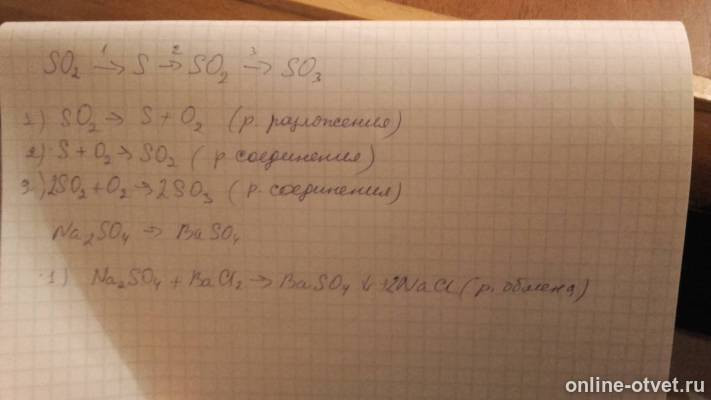 SO₂ →¹ S →² SO₂ →³ SO₃
1) SO₂ → S + O₂ (р. разложения)
2) S + O₂ → SO₂ (р. соединения)
3) 2SO₂ + O₂ → 2SO₃ (р. соединения)
Na₂SO₄ → BaSO₄
1) Na₂SO₄ + BaCl₂ → BaSO₄ ↓ + 2NaCl (р. обмена)
online-otvet.ru